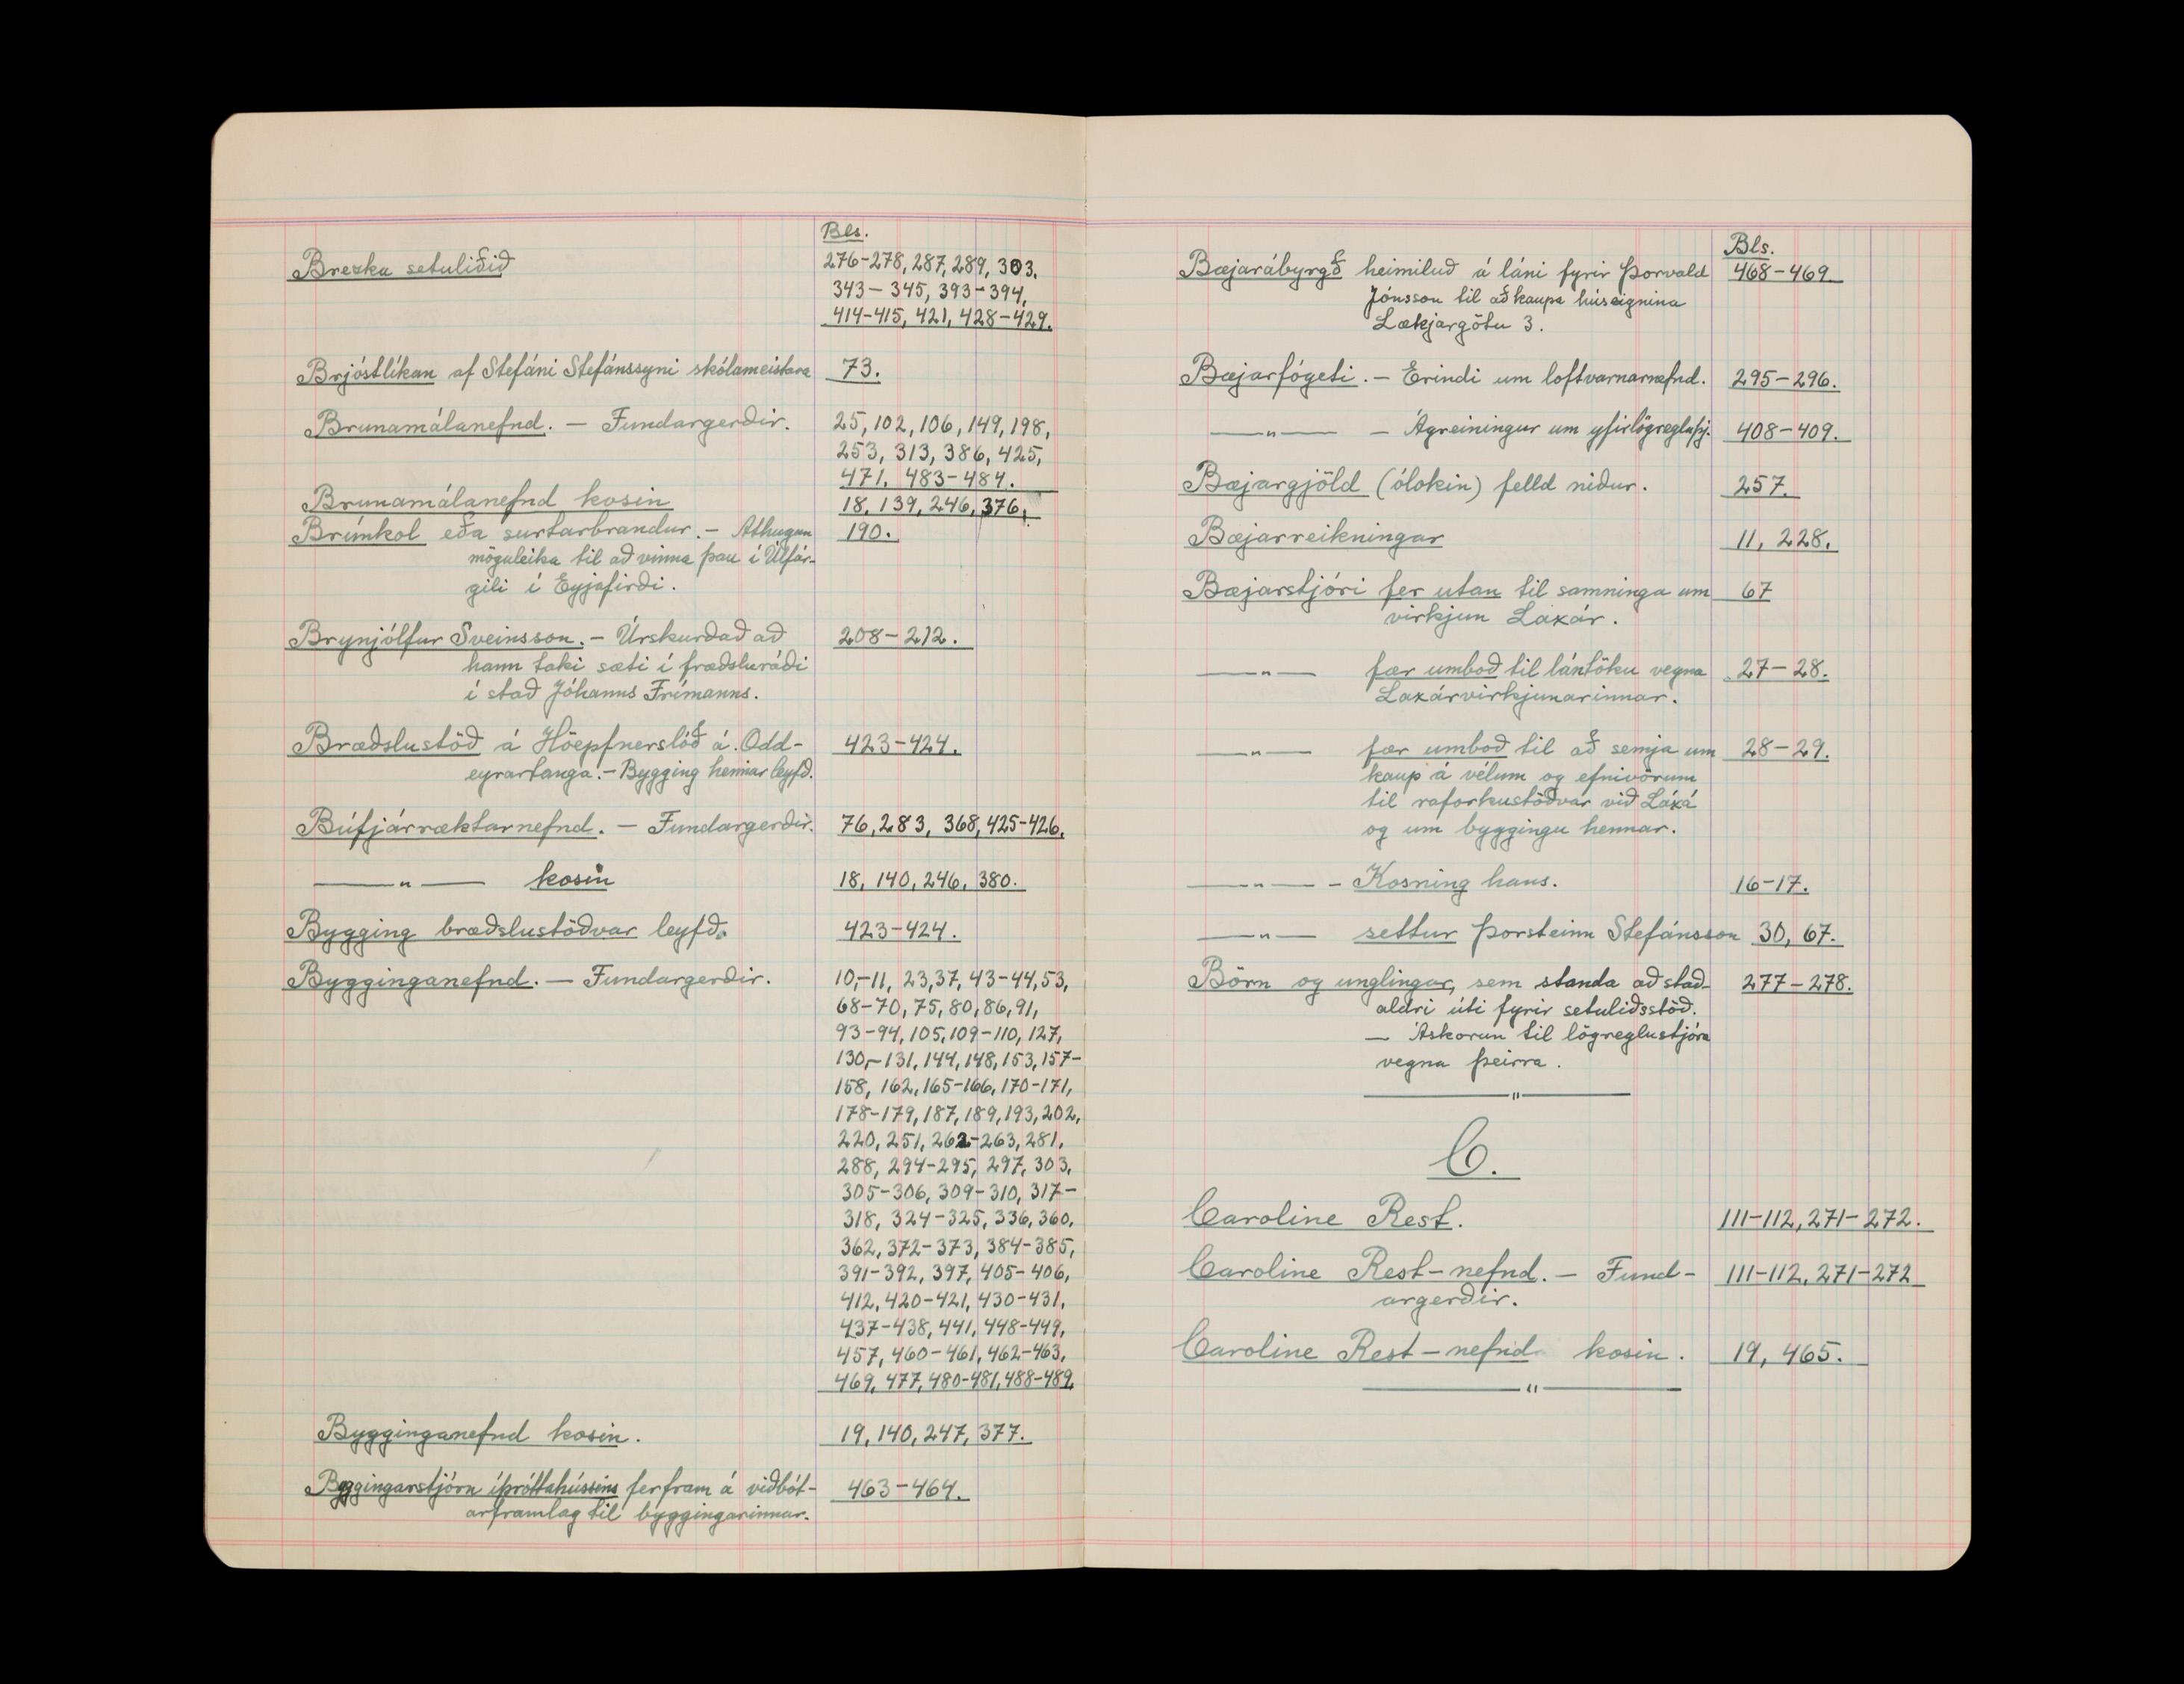 Bls.
Brezka setuliðið 276-278, 287, 289, 303.
343-345, 393-394,
414-415, 421, 428-429.
Brjóstlíkan af Stefáni Stefánssyni skólameistara 73.
Brunamálanefnd. - Fundargerðir. 25, 102, 106, 149, 198,
253, 313, 386, 425,
471, 483-484.
Brunamálanefnd kosin 18, 139, 246, 376.
Brúnkol eða surtarbrandur. - Athugun 190.
möguleika til að vinna þau í Úlfár-
gili í Eyjafirði.
Brynjólfur Sveinsson. - Úrskurðað að 208-212.
hann taki sæti í fræðsluráði
í stað Jóhanns Frímanns.
Bræðslustöð á Höepfnerslóð á Odd- 423-424.
eyrartanga. - Bygging hennar leyfð.
Búfjárræktarnefnd. - Fundargerðir. 76, 283, 368, 425-426.
—„— kosin 18, 140, 246, 380.
Bygging bræðslustöðvar leyfð. 423-424.
Bygginganefnd. - Fundargerðir. 10,-11, 23, 37, 43-44, 53,
68-70, 75, 80, 86, 91,
93-94, 105, 109-110, 127,
130,-131, 144, 148, 153, 157-
158, 162, 165-166, 170-171,
178-179, 187, 189, 193, 202,
220, 251, 262-263, 281,
288, 294-295, 297, 303,
305-306, 309-310, 317-
318, 324-325, 336, 360,
362, 372-373, 384-385,
391-392, 397, 405-406,
412, 420-421, 430-431,
437-438, 441, 448-449,
457, 460-461, 462-463,
469, 477, 480-481, 488-489.
Bygginganefnd kosin. 19, 140, 247, 377.
Byggingarstjórn íþróttahússins fer fram á viðbót- 463-464.
arframlag til byggingarinnar.
Bls.
Bæjarábyrgð heimiluð á láni fyrir Þorvald 468-469.
Jónsson til að kaupa húseignina
Lækjargötu 3.
Bæjarfógeti. - Erindi um loftvarnarnefnd. 295-296.
—„— - Ágreiningur um yfirlögregluþj. 408-409.
Bæjargjöld (ólokin) felld niður. 257.
Bæjarreikningar 11, 228.
Bæjarstjóri fer utan til samninga um 67
virkjun Laxár.
—„— fær umboð til lántöku vegna 27-28.
Laxárvirkjunarinnar.
—„— fær umboð til að semja um 28-29.
kaup á vélum og efnivörum
til raforkustöðvar við Laxá
og um byggingu hennar.
—„— - Kosning hans. 16-17.
—„— settur Þorsteinn Stefánsson 30, 67.
Börn og unglingar, sem standa að stað- 277-278.
aldri úti fyrir setuliðsstöð.
- Áskorun til lögreglustjóra
vegna þeirra.
—„—
C.
Caroline Rest. 111-112, 271-272.
Caroline Rest-nefnd. - Fund- 111-112, 271-272
argerðir.
Caroline Rest-nefnd kosin. 19, 465.
—„—